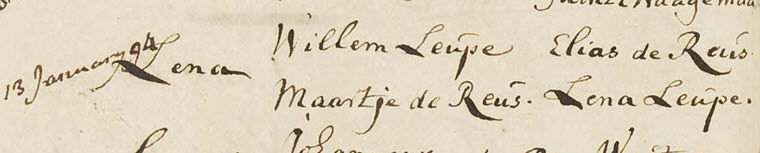 13 January 94
Lena
Willem Leupe Elias de Reus.
Maartje de Reus. Lena Leupe.